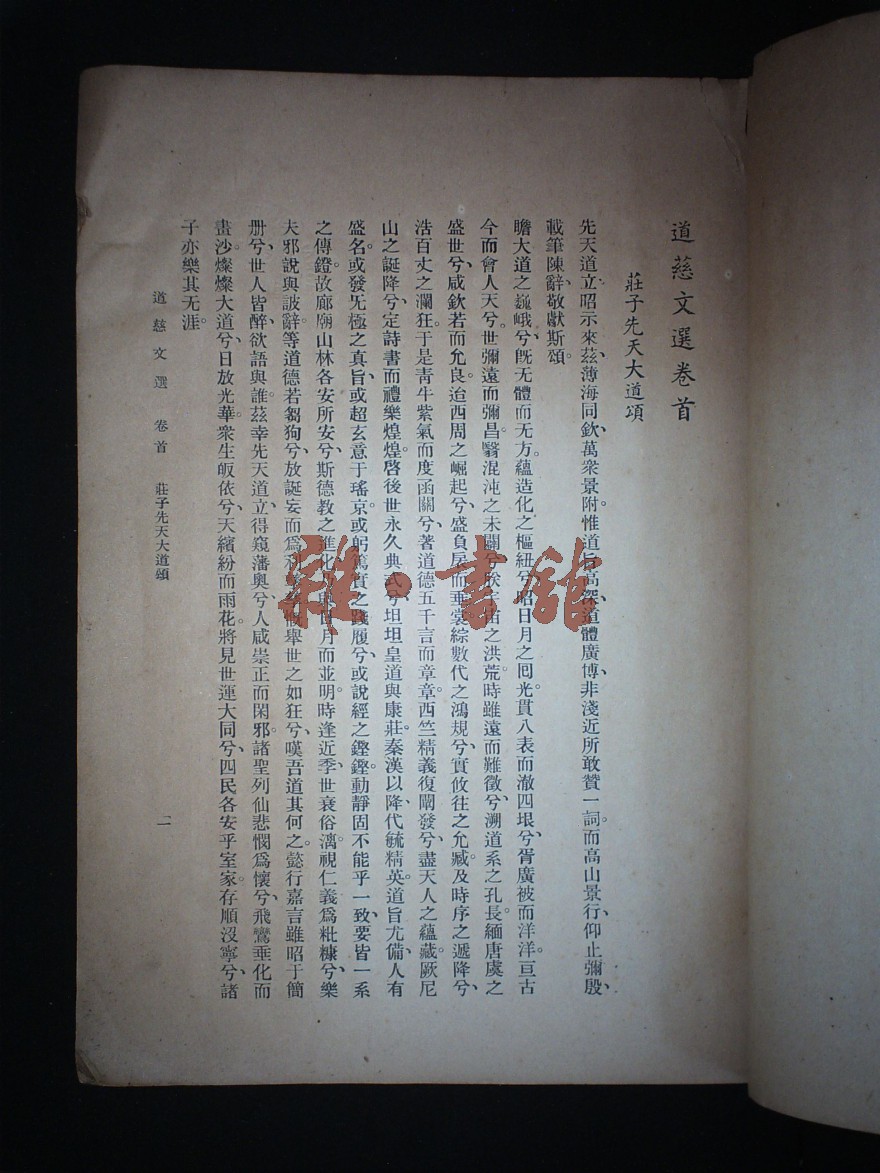 道慈文選卷首
莊子先天大道頌
先天道立、昭示來茲、薄海同欽、萬衆景附。惟道旨高深、道體廣博、非淺近所敢贊一詞。而高山景行、仰止彌殷、
載筆陳辭、敬獻斯頌。
瞻大道之巍峨兮、旣无體而无方。蘊造化之樞紐兮、昭日月之囘光。貫八表而澈四垠兮、胥廣被而洋洋。亘古
今而會人天兮、世彌遠而彌昌。繄混沌之未闢兮、宇宙之洪荒。時雖遠而難徵兮、溯道系之孔長。緬唐虞之
盛世兮、咸欽若而允良。迨西周之崛起兮、盛負扆而垂裳。綜數代之鴻規兮、實攸往之允臧。及時序之遞降兮、
浩百丈之瀾狂。于是靑牛紫氣而度函關兮、著道德五千言而章章。西竺精義復闡發兮、盡天人之蘊藏。厥尼
山之誕降兮、定詩書而禮樂煌煌。啓後世永久典式兮、坦坦皇道與康莊。秦漢以降、代毓精英。道旨尤備、人有
盛名。或發无極之真旨、或超玄意于瑤京。或躬篤實之踐履兮、或說經之鏗鏗。動靜固不能乎一致、要皆一系
之傳鐙。故廊廟山林各安所安兮、斯德敎之進化、與日月而並明。時逢近季、世衰俗漓。視仁義爲粃糠兮、樂
夫邪說與詖辭。等道德若芻狗兮、放誕妄而爲利。慨舉世之如狂兮、嘆吾道其何之。懿行嘉言雖昭于簡
册兮、世人皆醉、欲語與誰。茲幸先天道立、得窺藩奧兮、人咸崇正而閑邪。諸聖列仙悲憫爲懷兮、飛鸞垂化而
畫沙。燦燦大道兮、日放光華。衆生皈依兮、天繽紛而雨花。將見世運大同兮、四民各安乎室家。存順沒寧兮、諸
子亦樂其无涯。
道慈文選 卷首 莊子先天大道頌
二
雜·書館